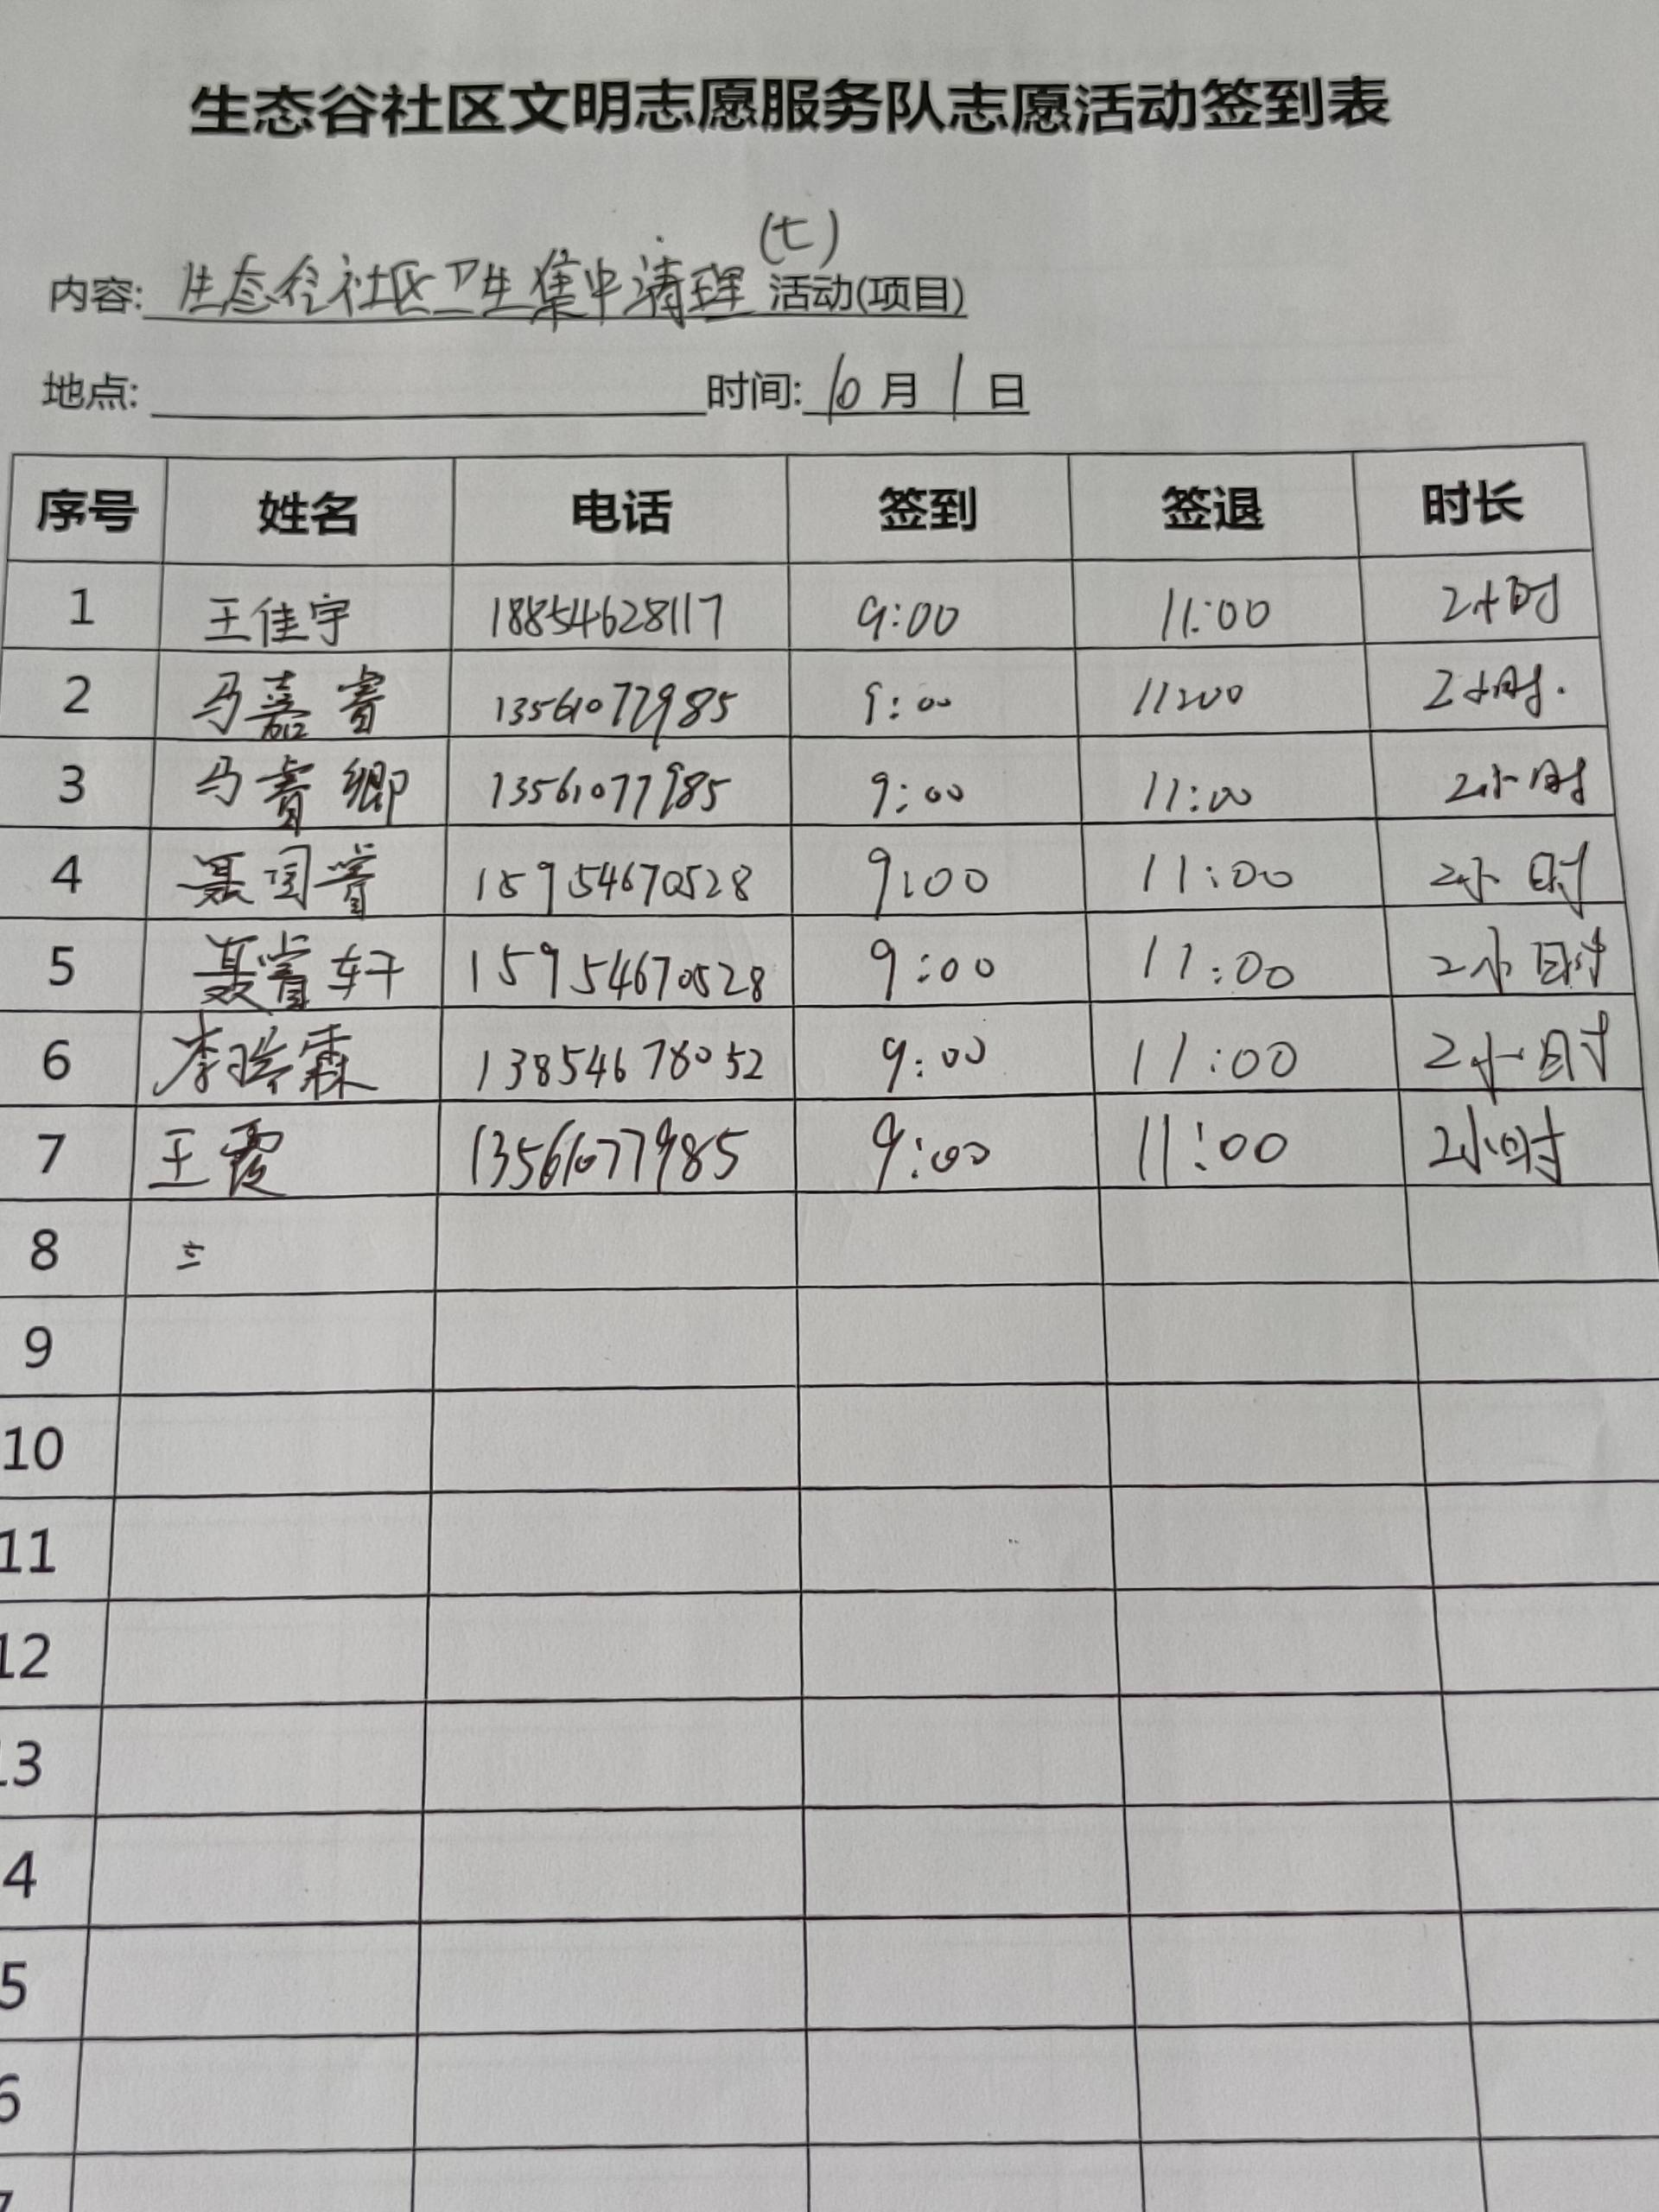 生态谷社区文明志愿服务队志愿活动签到表
(七)
内容: 生态谷社区卫生集中清理 活动(项目)
地点: 时间: 10 月 1 日
序号 姓名 电话 签到 签退 时长
1 王佳宇 18854628117 9:00 11:00 2小时
2 马嘉睿 13561077985 9:00 11:00 2小时.
3 马睿卿 13561077985 9:00 11:00 2小时
4 聂国睿 15954670528 9:00 11:00 2小时
5 聂睿轩 15954670528 9:00 11:00 2小时
6 李瑞霖 13854678052 9:00 11:00 2小时
7 王霞 13561077985 9:00 11:00 2小时
8
9
10
11
12
13
4
5
6
7